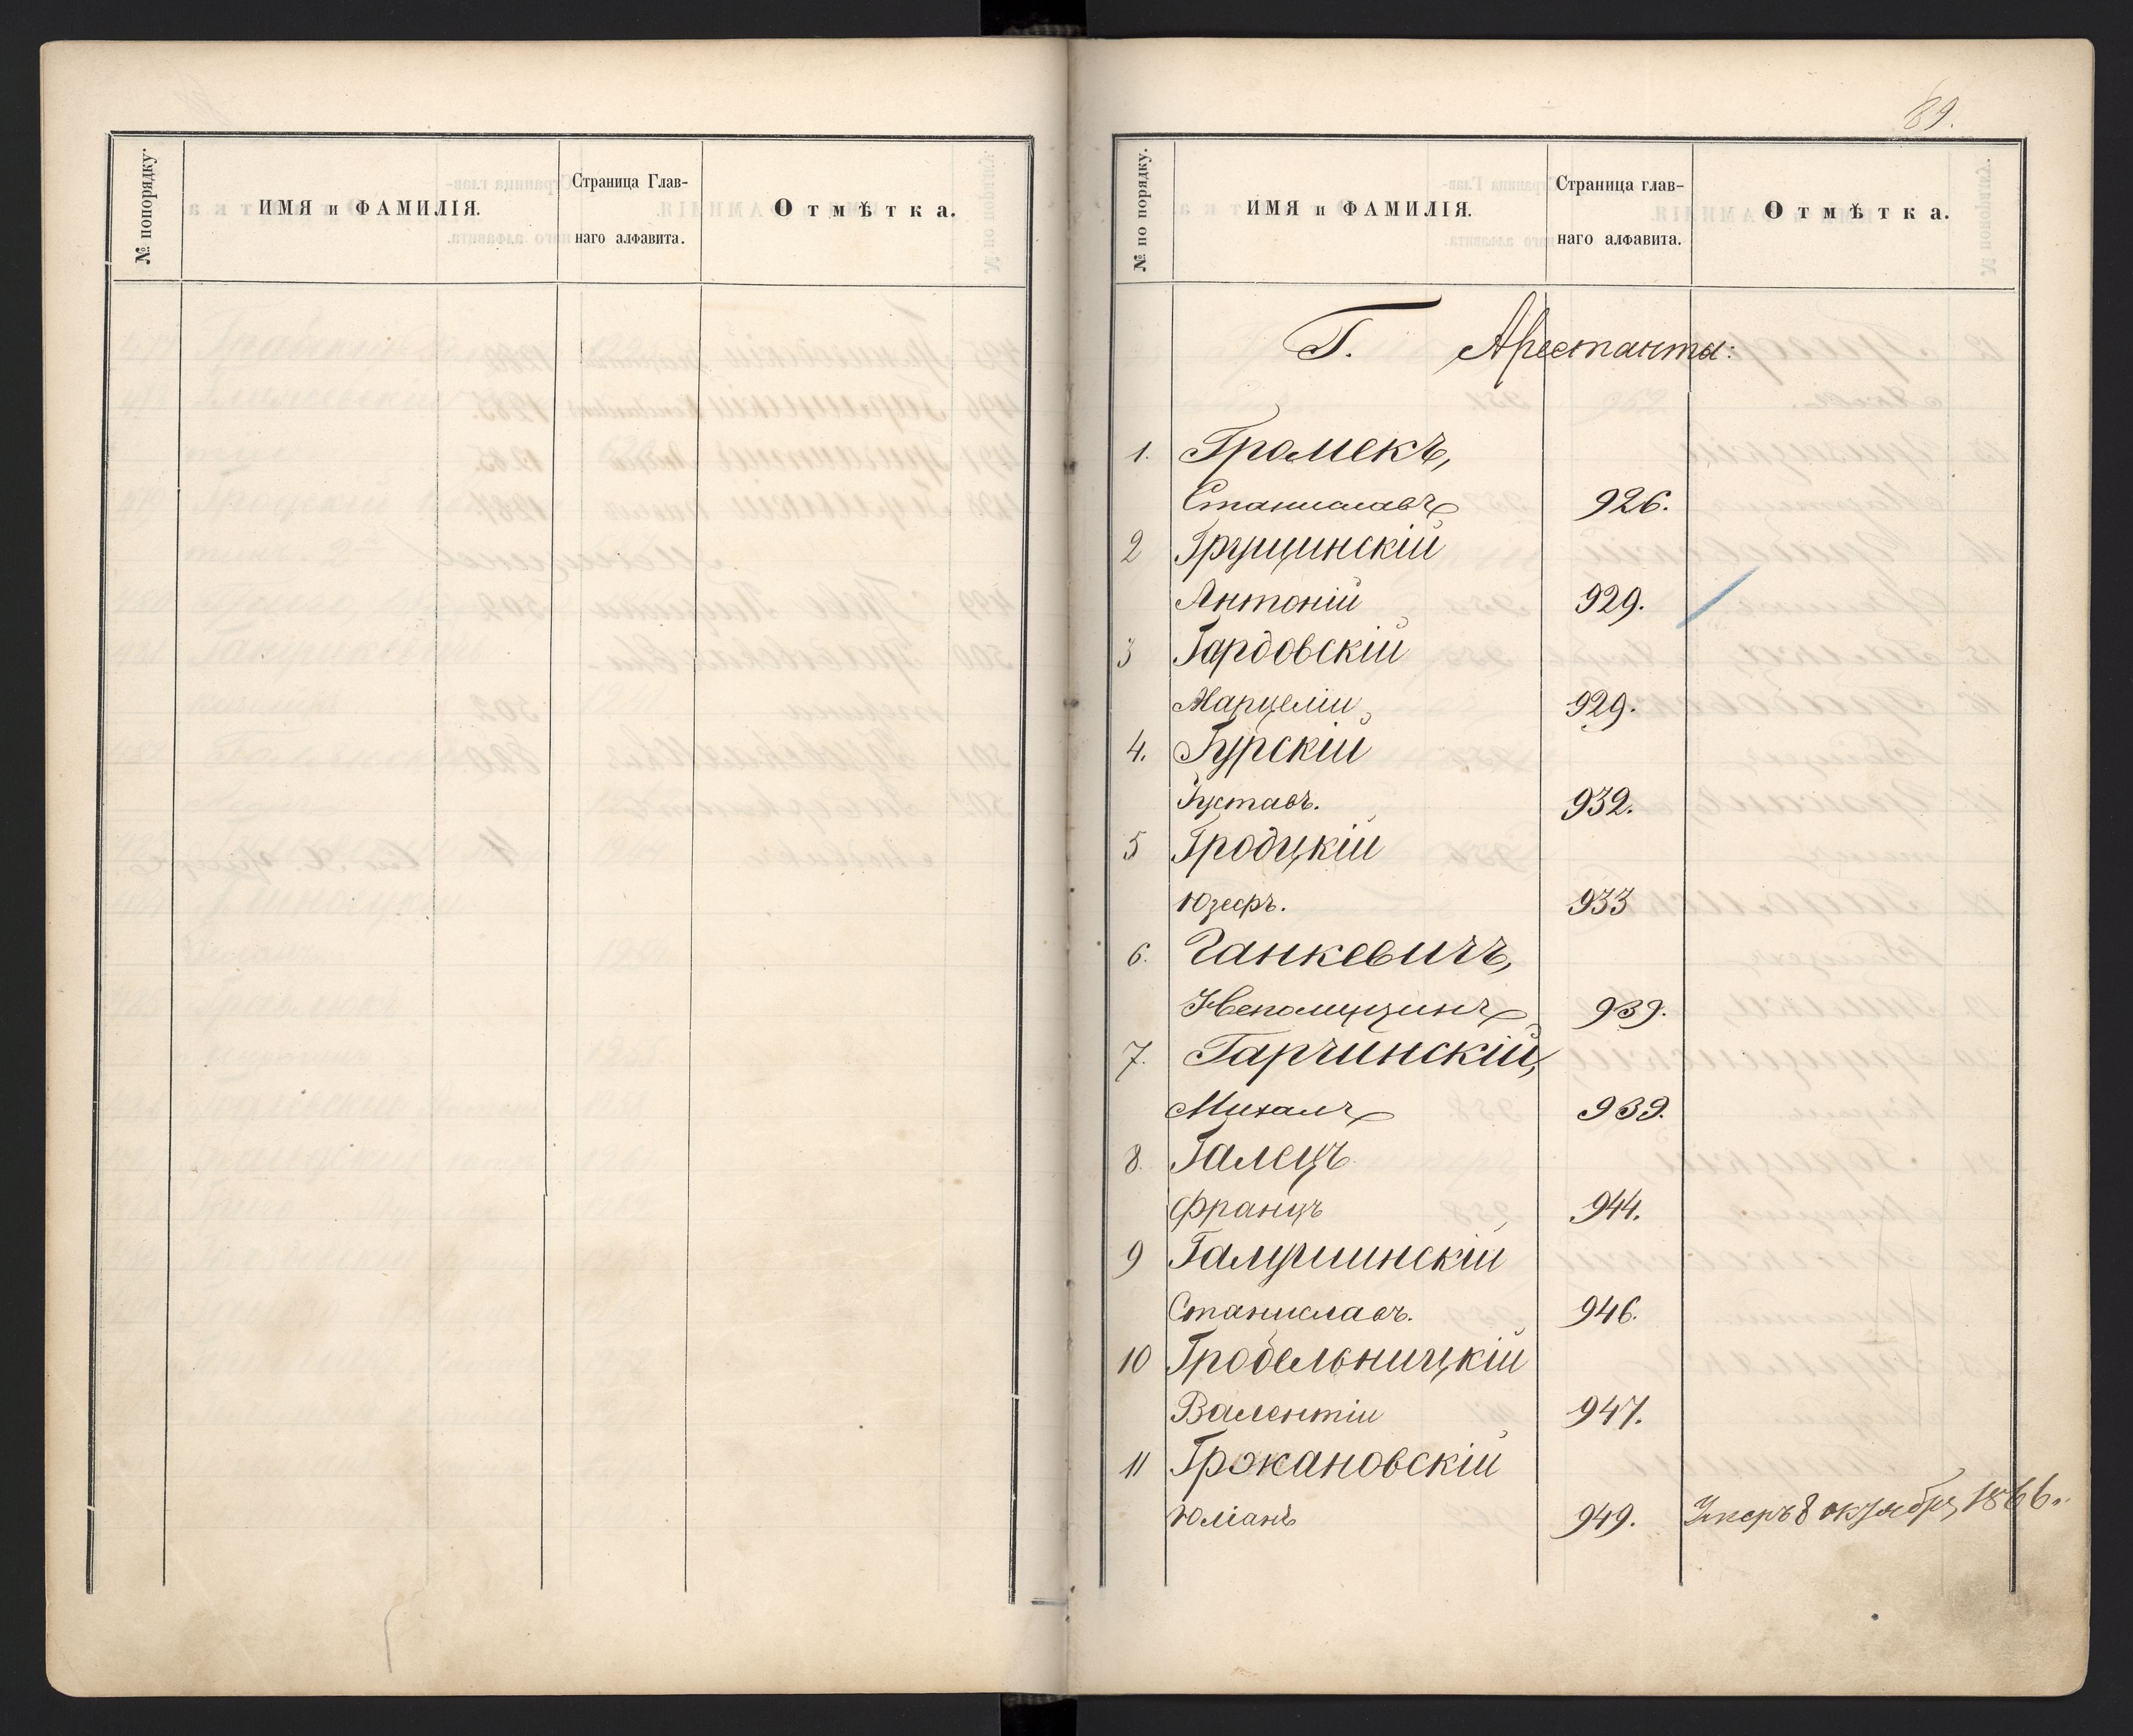 № попорядку.
ИМЯ и ФАМИЛІЯ.
Страница Глав-
наго алфавита.
Отмѣтка.
89.
№ по порядку.
ИМЯ и ФАМИЛІЯ.
Страница глав-
наго алфавита.
Отмѣтка.
Г. Арестанты:
1. Громекъ,
Станиславъ 926.
2 Грущинскій
Антоній 929.
3 Гардовскій
Марцелій 929.
4. Гурскій
Густавъ. 932.
5 Гродцкій
Юзефъ. 933
6. Ганкевичъ,
Непомуцинъ 939.
7. Гарчинскій,
Михалъ 939.
8. Галецъ
Францъ 944.
9 Галушинскій
Станиславъ. 946.
10 Гродельницкій
Валентій 947.
11 Гржановскій
Юліанъ 949. Умеръ 8 октября 1866 г.